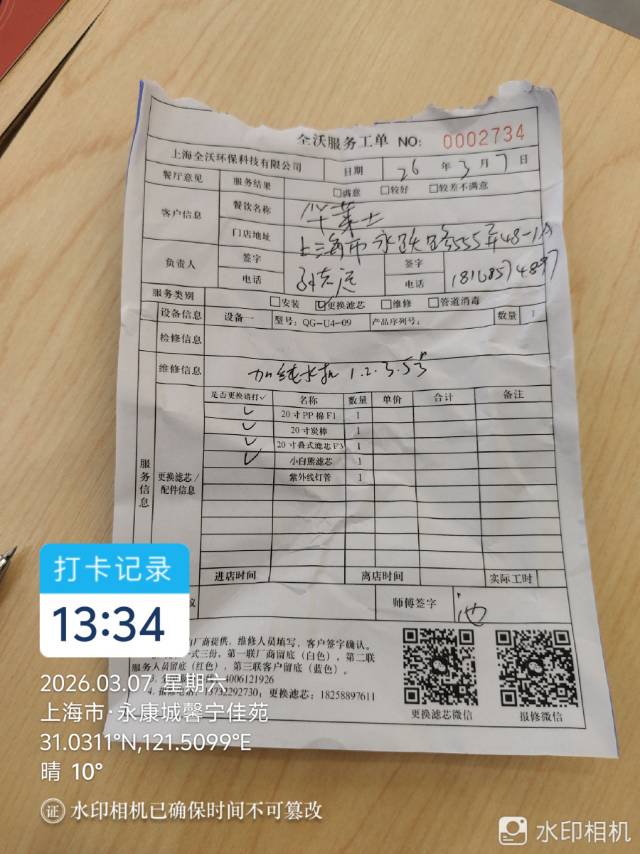 全沃服务工单 NO: 0002734
上海全沃环保科技有限公司 日期 26 年 3 月 7 日
餐厅意见 服务结果 □满意 □较好 □较差不满意
客户信息 餐饮名称 华莱士
门店地址 上海市永跃路555弄48-1
负责人 签字 签字
电话 电话
服务类别 □安装 ☑更换滤芯 □维修 □管道消毒
设备信息 设备一 型号: QG-U4-09 产品序列号: 数量 1
检修信息
维修信息 纯水机 1.2.3.5
服务信息 更换滤芯/配件信息
是否更换请打✓ 名称 数量 单价 合计 备注
✓ 20寸PP棉F1 1
✓ 20寸炭棒 1
✓ 20寸叠式滤芯F3 1
✓ 小白熊滤芯 1
紫外线灯管 1
进店时间 离店时间 实际工时
议 师傅签字 池
厂商提供，维修人员填写，客户签字确认。
一式三份。第一联厂商留底（白色），第二联
服务人员留底（红色），第三联客户留底（蓝色）。
4006121926
4. 报修电话: 13732292730; 更换滤芯: 18258897611
更换滤芯微信 报修微信
打卡记录
13:34
2026.03.07 星期六
上海市·永康城馨宁佳苑
31.0311°N,121.5099°E
晴 10°
证 水印相机已确保时间不可篡改
水印相机